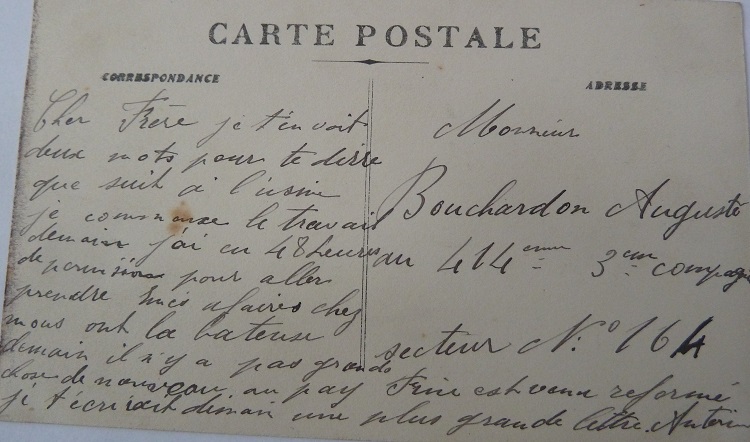 CARTE POSTALE
CORRESPONDANCE
ADRESSE
Cher Frère je t'envoit
deux mots pour te dirre
que suit a l'usine
je commanxe le travail
demain j'ai eu 48 heures
de permission pour aller
prendre mes afaires chez
nous ont la bateuse
demain il n'y a pas grande
chose de nouveau au pay Frine est venu reformé
je t'écrirait demain une plus grande lettre. Antoine
Monsieur
Bouchardon Auguste
au 414eme 3em compagnie
secteur N:o 164